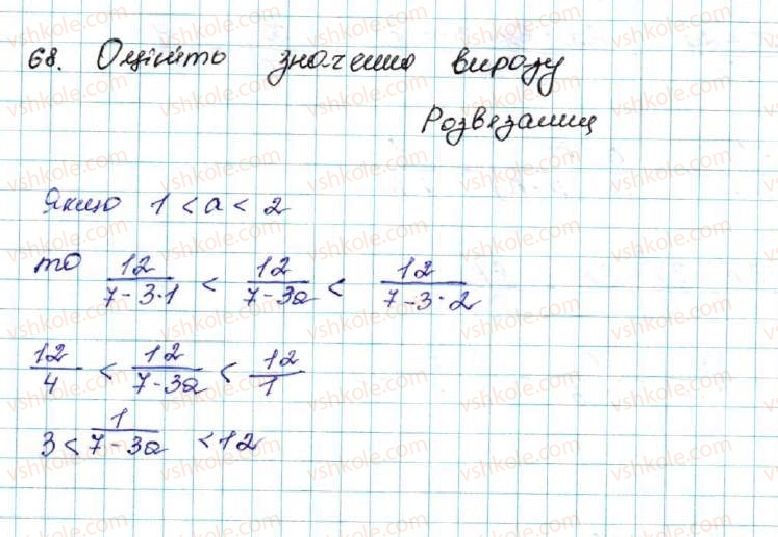 68. Оцініть значення виразу
Розвязання
Якщо 1 < a < 2
то 12/(7-3·1) < 12/(7-3a) < 12/(7-3·2)
12/4 < 12/(7-3a) < 12/1
3 < 1/(7-3a) < 12